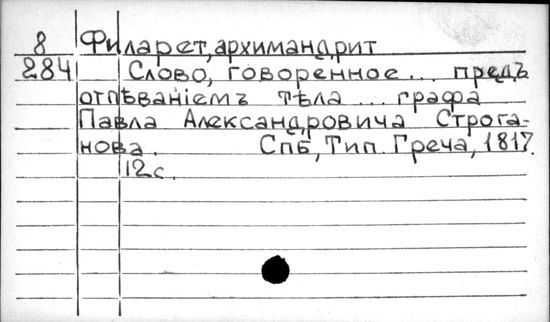 8 Филарет, архимандрит
284 Слово, говоренное... предъ
отпѣваніемъ тѣла... графа
Павла Александровича Строга-
нова. СПБ, Тип. Греча, 1817.
12 с.